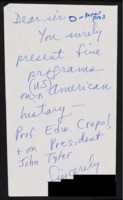 Dear sir:
You surely
present fine
programs
(US)
on American
history —
Prof. Edw. Crapol,
+ on President
John Tyler
Sincerely